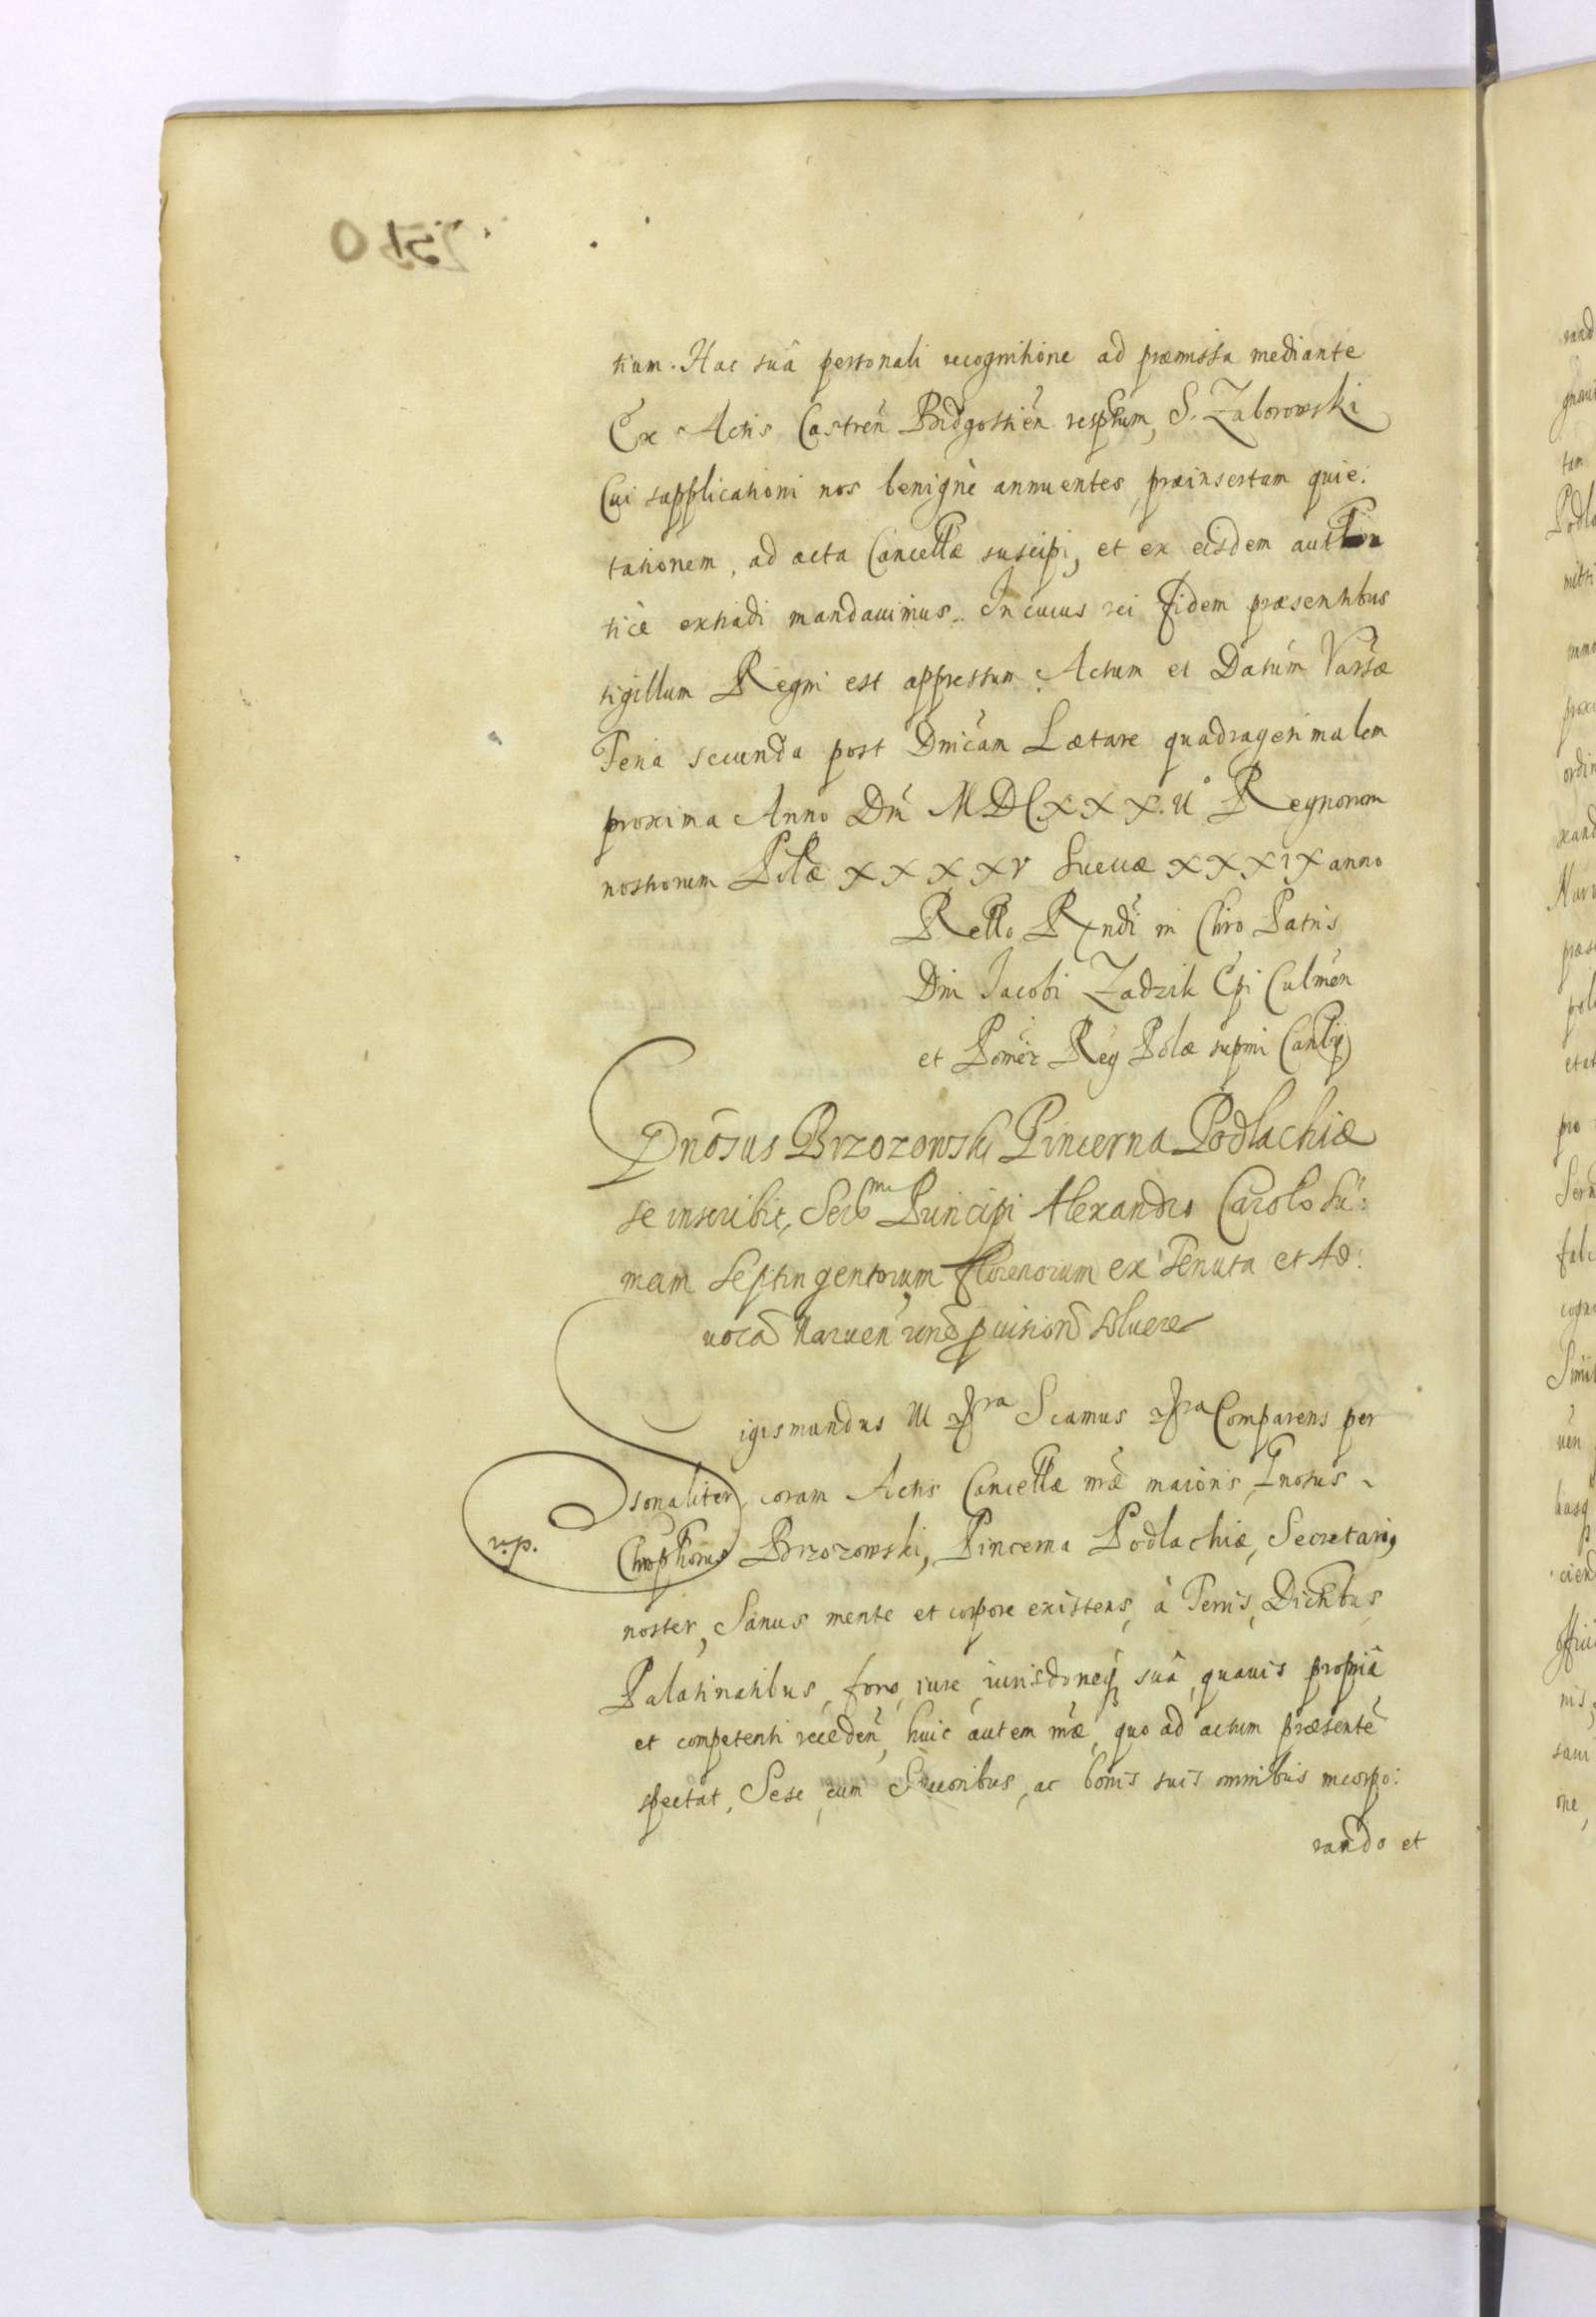 tium. Hac suâ personali recognitione ad præmissa mediante
Ex Actis Castreñ Bidgostieñ rescptum, S. Zaborowski
Cui supplicationi nos benignè annuentes, præinsertam quie:
tationem, ad acta Cancellæ suscipi, et ex eisdem authen
ticè extradi mandauimus. In cuius rei fidem præsentibus
sigillum Regni est appressum. Actum et Datum Varsæ
Feria secunda post Dnicam Lætare quadragesimalem
proxima Anno Dni MDCXXX.II° Regnorum
nostrorum Polæ XXXXV Sueciæ XXXIX anno
Rello Rndi in Chro Patris
Dni Jacobi Zadzik Epi Culmen
et Pomer Reg Polæ supmi Canlÿ
Gnosus Brzozowski Pincerna Podlachiæ
se inscribit, Sermo Principi Alexandro Carolo Su:
mam Septingentorum florenorum ex Tenuta et Ad:
uocad Naruen rone puision soluere
igismundus III etc Sciamus etc Comparens per
sonaliter coram Actis Cancellæ nræ maioris, Gnosus
r.p.
Chrophorus Brzozowski, Pincerna Podlachiæ, Secretarius
noster, Sanus mente et corpore existens, à Terris, Districtibus
Palatinatibus, foro, iure, iurisdoneq suâ, quauis propriâ
et competenti receden, huic autem nræ, quo ad actum præsente
spectat, Sese cum Succoribus, ac bonis suis omnibus incorpo:
rando et